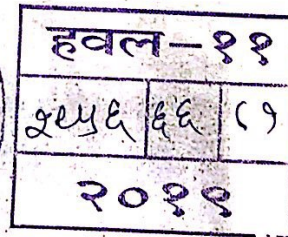 हवल-११
२८५६ ६६ ८१
२०१९